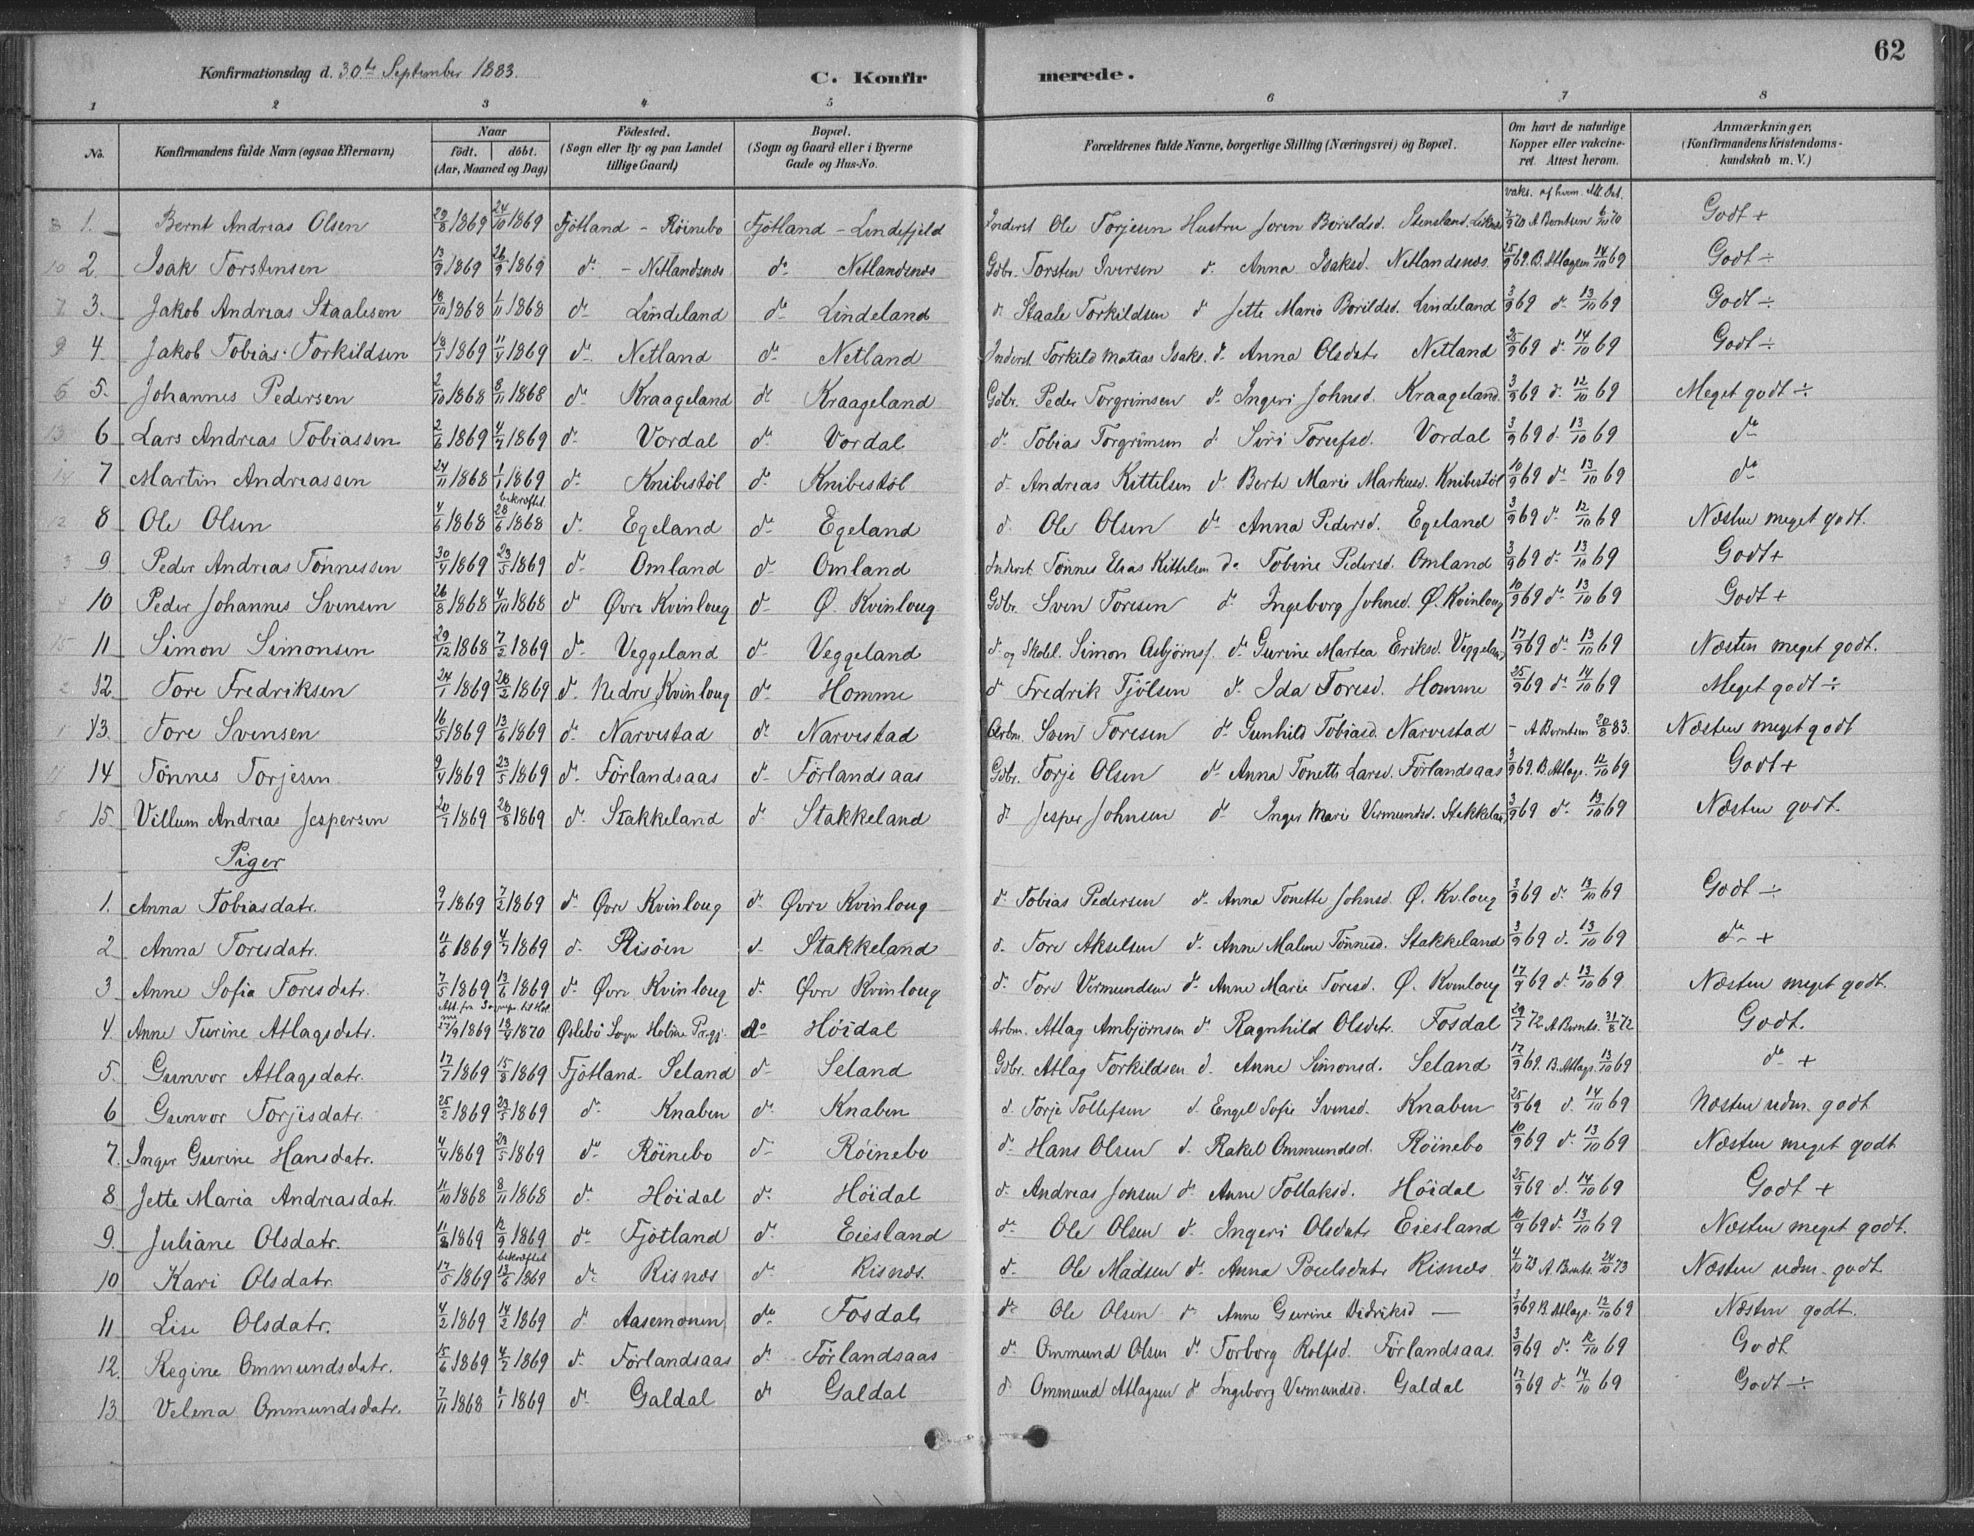 62
Konfirmationsdag d. 30te September 1883. C. Konfirmerede.
1 2 3 4 5 6 7 8
No. Konfirmandens fulde Navn (ogsaa Efternavn) Naar født. døbt. (Aar, Maaned og Dag) Födested. (Sogn eller By og paa Landet tillige Gaard) Bopæl. (Sogn og Gaard eller i Byerne Gade og Hus-No. Forældrenes fulde Navne, borgerlige Stilling (Næringsvei) og Bopæl. Om havt de naturlige Kopper eller vaccineret. Attest herom. Anmærkninger. (Konfirmandens Kristendomskundskab m. V.)
vaks. af hvem. Att. Dat.
8 1. Bernt Andreas Olsen 29/8 1869 24/10 1869 Fjötland - Röinebo Fjötland - Lindefjeld Inderst Ole Torjesen Hustru Joren Borildsd. Stensland. 7/9 70 A Berntsen 6/10 70 Godt +
10 2. Isak Torstensen 13/9 1869 26/9 1869 do - Netlandsnæs do Netlandsnæs Gdbr. Torsten Iversen do Anna Isaksd. Netlandsnæs. 25/9 69. B. Atlagsen 14/10 69 Godt ÷
7 3. Jakob Andreas Staalesen 18/10 1868 1/11 1868 do Lindeland do Lindeland do Staale Torkildsen do Jette Maria Borildsd. Lindeland 3/9 69 do 13/10 69 Godt ÷
9 4. Jakob Tobias Torkildsen 18/1 1869 11/4 1869 do Netland do Netland Inderst Torkild Matias Isaks. do Anna Olsdatr Netland 25/9 69 do 14/10 69 Godt ÷
6 5. Johannes Pedersen 2/10 1868 8/11 1868 do Kraageland do Kraageland Gdbr. Peder Torgrimsen do Ingeri Johnsd. Kraageland 3/9 69 do 12/10 69 Meget godt ÷
13 6 Lars Andreas Tobiassen 2/6 1869 4/7 1869 do Vordal do Vordal do Tobias Torgrimsen do Siri Torufsd. Vordal 3/9 69 do 13/10 69 do
14 7 Martin Andreassen 24/11 1868 1/1 1869 do Knibestöl do Knibestöl do Andreas Kittelsen do Berte Marie Markusd. Knibestöl 10/9 69 do 13/10 69 do
bekræftet
12 8 Ole Olsen 4/6 1868 28/6 1868 do Egeland do Egeland do Ole Olsen do Anna Pedersd. Egeland 3/9 69 do 12/10 69 Næsten meget godt.
3 9 Peder Andreas Tönnessen 30/4 1869 23/5 1869 do Omland do Omland Inderst Tönnes Elias Kittelsen do Tobine Pedersd. Omland 3/9 69 do 13/10 69 Godt +
4 10 Peder Johannes Svensen 26/8 1868 4/10 1868 do Øvre Kvinloug do Ø. Kvinloug Gdbr. Sven Toresen do Ingeborg Johnsd. Ø. Kvinloug 10/9 69 do 13/10 69 Godt +
15 11 Simon Simonsen 29/12 1868 7/2 1869 do Veggeland do Veggeland do og Skolel. Simon Asbjörnsf. do Gurine Martea Eriksd. Veggeland 17/9 69 do 13/10 69 Næsten meget godt.
2 12. Tore Fredriksen 24/1 1869 28/2 1869 do Nedre Kvinloug do Homme do Fredrik Tjölsen do Ida Toresd. Homme 25/9 69 do 14/10 69 Meget godt ÷
1 13. Tore Svensen 16/5 1869 13/6 1869 do Narvestad do Narvestad Arbm. Sven Toresen do Gunhild Tobiasd. Narvestad - A Berntsen 20/8 83. Næsten meget godt
11 14 Tönnes Torjesen 9/4 1869 23/5 1869 do Förlandsaas do Förlandsaas Gdbr. Torje Olsen do Anna Tonette Larsd. Förlandsaas 3/9 69. B. Atlags. 12/10 69 Godt +
5 15. Villum Andreas Jespersen 20/7 1869 26/8 1869 do Stakkeland do Stakkeland do Jesper Johnsen do Inger Marie Vermundsd. Stakkeland 3/9 69 do 13/10 69 Næsten godt.
Piger
1. Anna Tobiasdatr. 9/1 1869 7/2 1869 do Øvre Kvinloug do Øvre Kvinloug do Tobias Pedersen do Anna Tonette Johnsd. Ø. Kv.loug 3/9 69 do 13/10 69 Godt ÷
2 Anna Toresdatr. 11/6 1869 4/7 1869 do Risöen do Stakkeland do Tore Akselsen do Anne Malene Tönnesd. Stakkeland 3/9 69 do 13/10 69 do +
3 Anne Sofia Toresdatr. 7/5 1869 13/6 1869 do Øvre Kvinloug do Øvre Kvinloug do Tore Vermundsen do Anne Marie Toresd. Ø. Kvinloug 17/9 69 do 13/10 69 Næsten meget godt.
4. Anne Turine Atlagsdatr. 27/9 1869 18/4 1870 Øslebö Sogn Holme Prgj. do Höidal Arbm. Atlag Ambjörnsen do Ragnhild Olsdatr. Fosdal 29/7 72 A Bernts. 31/8 72 Godt.
5. Gunvor Atlagsdatr. 17/7 1869 15/8 1869 Fjötland - Seland do Seland Gdbr. Atlag Torkildsen do Anne Simonsd. Seland 17/9 69. B. Atlags. 13/10 69 do +
6 Gunvor Torjesdatr. 25/2 1869 23/5 1869 do Knaben do Knaben do Torje Tollefsen do Engel Sofie Svensd. Knaben 25/9 69 do 14/10 69 Næsten udm. godt
7. Inger Gurine Hansdatr. 4/4 1869 23/5 1869 do Röinebo do Röinebo do Hans Olsen do Rakel Ommundsd. Röinebo 10/9 69 do 13/10 69 Næsten meget godt
8 Jette Maria Andreasdatr. 11/10 1868 8/11 1868 do Höidal do Höidal do Andreas Jonsen do Anne Tollaksd. Höidal 25/9 69 do 14/10 69 Godt +
9. Juliane Olsdatr. 11/8 1869 12/9 1869 do Fjötland do Eiesland do Ole Olsen do Ingeri Olsdatr Eiesland 10/9 69 do 13/10 69 Næsten meget godt.
bekræftet
10 Kari Olsdatr. 17/5 1869 13/6 1869 do Risnæs do Risnæs. do Ole Madsen do Anna Poulsdatr Risnæs 4/10 73 A. Bernts. 24/10 73 Næsten udm. godt
11 Lise Olsdatr. 4/2 1869 14/2 1869 do Aasemoen do Fosdal do Ole Olsen do Anne Gurine Didriksd — 3/9 69 B. Atlags. 12/10 69 Næsten godt.
12. Regine Ommundsdatr. 15/6 1869 4/7 1869 do Förlandsaas do Förlandsaas do Ommund Olsen do Torborg Rolfsd. Förlandsaas. 3/9 69 do 12/10 69 Godt
13 Velena Ommundsdatr. 7/11 1868 1/1 1869 do Galdal do Galdal do Ommund Atlagsen do Ingeborg Vermundsd. Galdal 17/9 69 do 14/10 69 Godt ÷